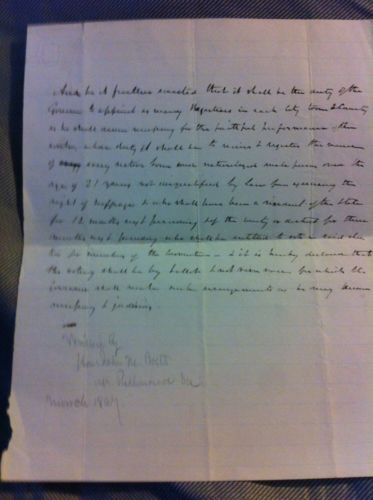 And be it further enacted that it shall be the duty of the
Governor to appoint as many Registers in each City town & County
as he shall deem necessary for the faithful performance of their
duties, whose duty it shall be to receive & register the names
of every native born and naturalized male person over the
age of 21 years not disqualified by law from exercising the
right of suffrage & who shall have been a resident of the State
for 12 months next preceding & of the County or district for three
months next preceding who shall be entitled to vote
for members of the Convention & it is hereby declared that
the voting shall be by ballot & not viva voce for which the
Governor shall make such arrangements as he may deem
necessary & judicious.
Writing by
Hon John M. Botts
Richmond Va
March 1867